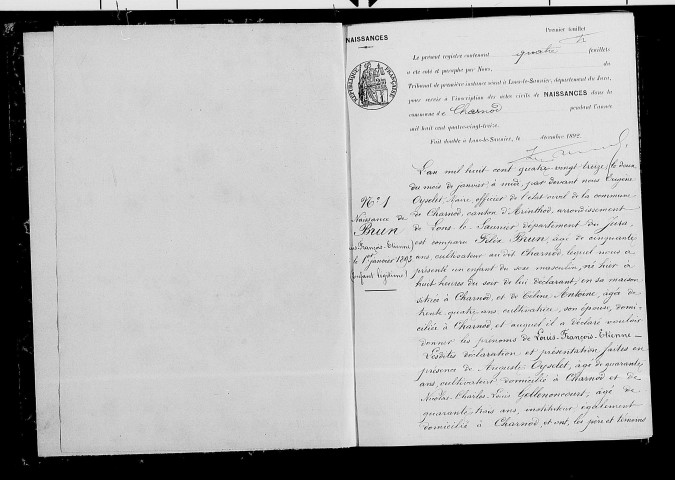 Premier feuillet
NAISSANCES
Le présent registre contenant quatre feuillets
a été coté et paraphé par Nous, du
Tribunal de première instance séant à Lons-le-Saunier, département du Jura,
pour servir à l'inscription des actes civils de NAISSANCES dans la
commune de Charnod pendant l'année
mil huit cent quatre-vingt-treize.
Fait double à Lons-le-Saunier, le décembre 1892
RÉPUBLIQUE FRANÇAISE
N° 1
Naissance de
Brun
Louis François-Etienne
le 1er janvier 1893
(enfant légitime)
L'an mil huit cent quatre vingt treize, le deux
du mois de janvier à midi, par devant nous Eugène
Oyselet, maire, officier de l'état civil de la commune
de Charnod, canton d'Arinthod, arrondissement
de Lons-le-Saunier département du Jura,
est comparu Félix Brun, âgé de cinquante
ans, cultivateur au dit Charnod, lequel nous a
présenté un enfant du sexe masculin, né hier à
huit heures du soir de lui déclarant, en sa maison
sitrée à Charnod, et de Céline Antoine, âgée de
trente quatre ans cultivatrice, son épouse, domi-
ciliée à Charnod, et auquel il a déclaré vouloir
donner les prénoms de Louis-François-Etienne —
Lesdites déclaration et présentation faites en
présence de Auguste Oyselet, âgé de quarante
ans, cultivateur domicilié à Charnod et de
Nicolas-Charles-Louis Gellenoncourt, âgé de
quarante trois ans, instituteur également
domicilié à Charnod, et ont, les père et témoins